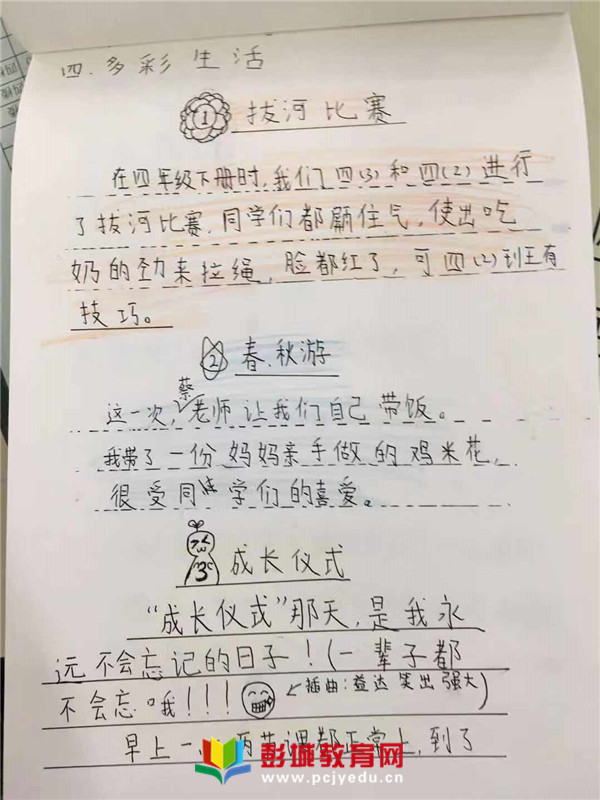 四.多彩生活
① 拔河比赛
在四年级下册时,我们四(3)和四(2)进行
了拔河比赛.同学们都屏住气,使出吃
奶的劲来拉绳,脸都红了,可四(2)到王有
技巧。
② 春.秋游
这一次,蔡老师让我们自己带饭。
我带了一份妈妈亲手做的鸡米花,
很受同学们的喜爱。
3 成长仪式
“成长仪式”那天,是我永
远不会忘记的日子!(一辈子都
不会忘哦!!! ←插曲:益达笑出强大)
早上一、两节课都正常上,到了
彭城教育网
www.pcjyedu.cn